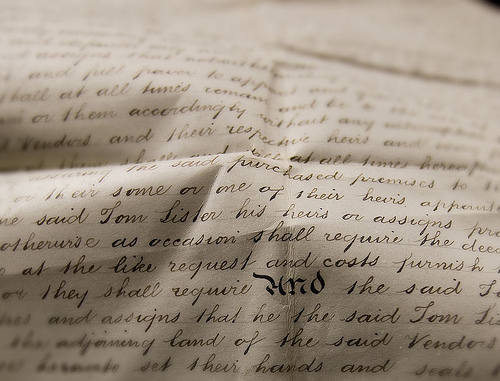 and full power to
shall at all times remain and be
or them accordingly without any
Vendors and their respective heirs and
shall at all times hereof
the said purchased premises to
or their some or one of their heirs
said Tom Lister his heirs or assigns
otherwise as occasion shall require the
at the like request and costs furnish
or they shall require And the said
and assigns that he the said Tom
the adjoining land of the said Vendors
set their hands and seals